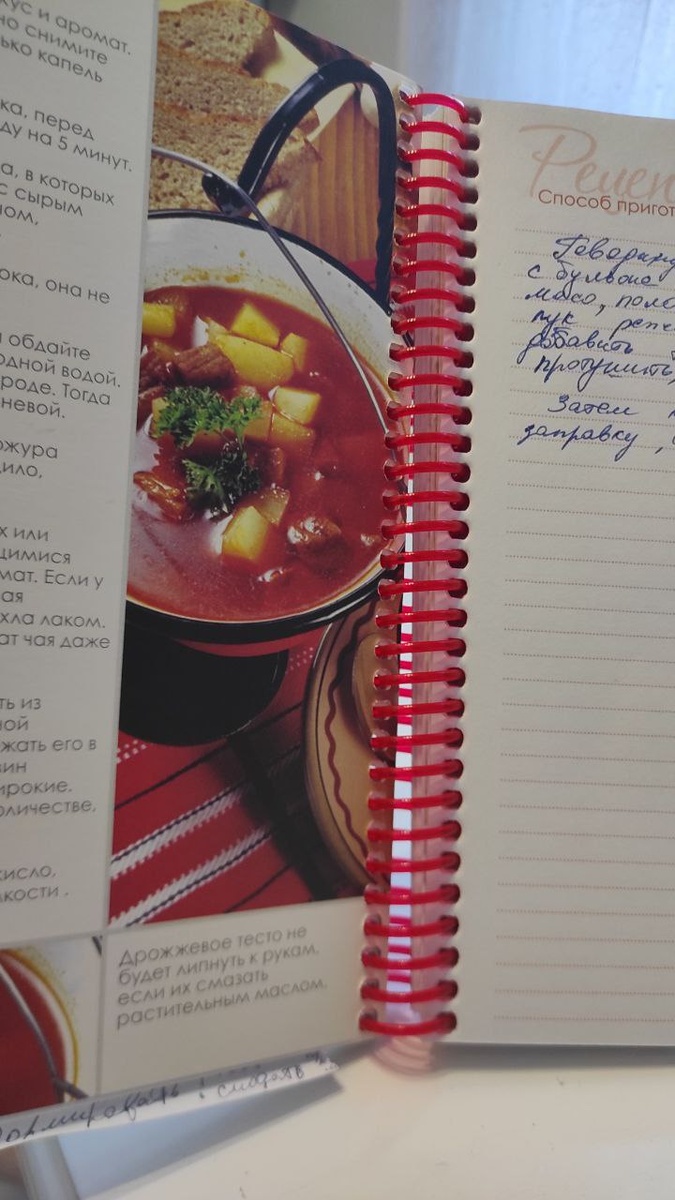 кус и аромат.
но снимите
ько капель
ка, перед
ду на 5 минут.
а, в которых
с сырым
ном,
ока, она не
и обдайте
одной водой.
роде. Тогда
невой.
ожура
дило,
х или
щимися
мат. Если у
ая
хла лаком.
ат чая даже
ть из
ной
жать его в
вин
ирокие.
оличестве,
кисло,
кости.
Дрожжевое тесто не
будет липнуть к рукам,
если их смазать
растительным маслом.
Рецеп
Способ пригот
с бульоне
мясо,
лук репч
добавить
протушить,
Затем
заправку,